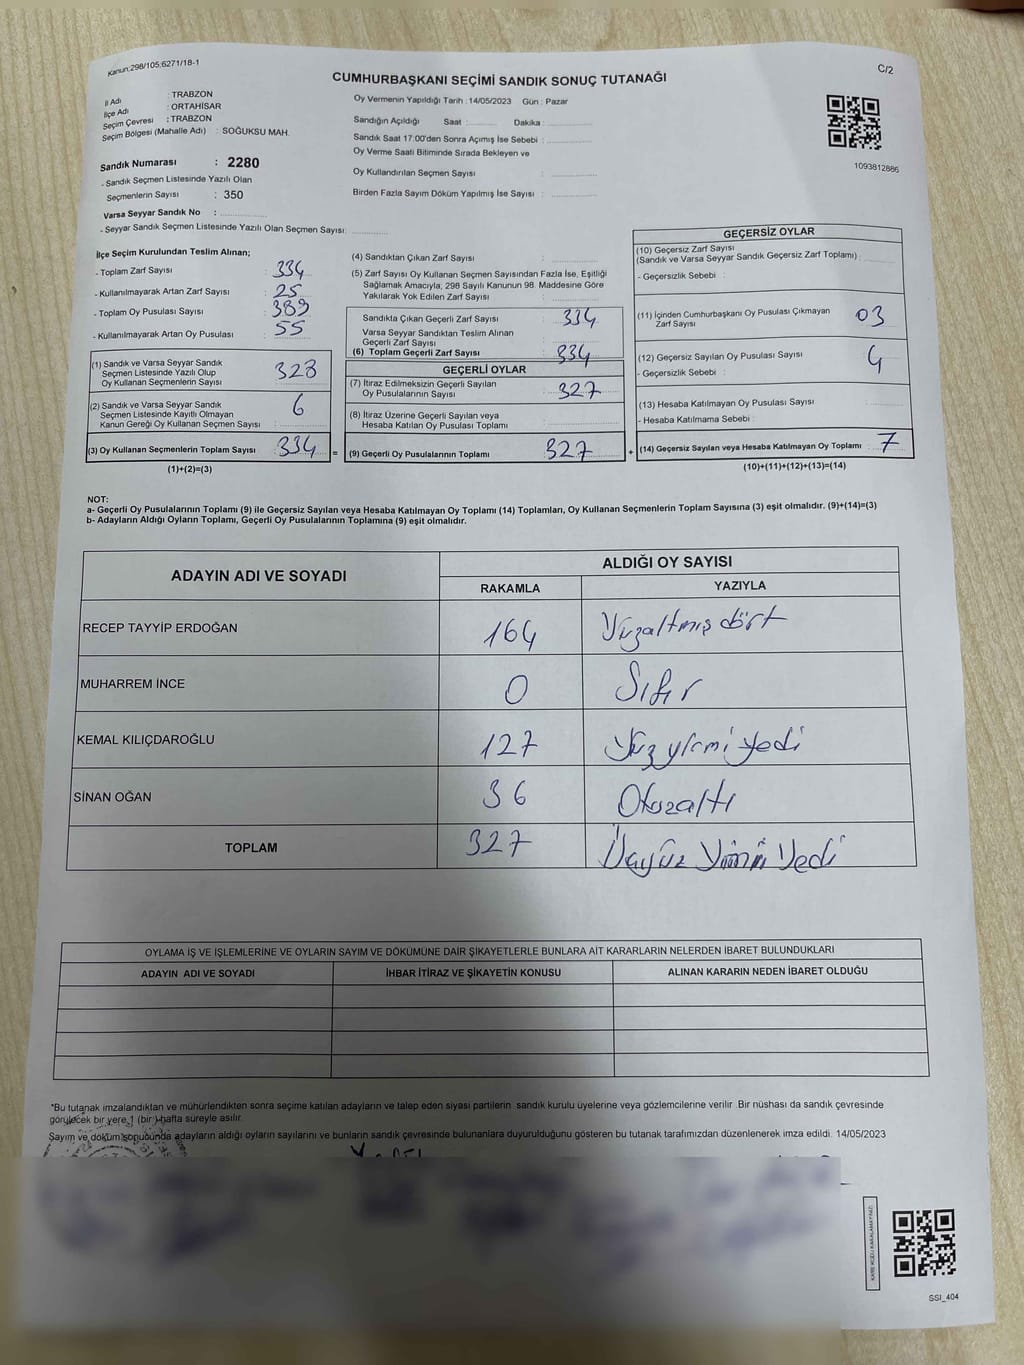 Kanun:298/105;6271/18-1
CUMHURBAŞKANI SEÇİMİ SANDIK SONUÇ TUTANAĞI
C/2
İl Adı : TRABZON
İlçe Adı : ORTAHİSAR
Seçim Çevresi : TRABZON
Seçim Bölgesi (Mahalle Adı) : SOĞUKSU MAH.
Sandık Numarası : 2280
- Sandık Seçmen Listesinde Yazılı Olan
Seçmenlerin Sayısı : 350
Varsa Seyyar Sandık No :
- Seyyar Sandık Seçmen Listesinde Yazılı Olan Seçmen Sayısı:
Oy Vermenin Yapıldığı Tarih : 14/05/2023 Gün : Pazar
Sandığın Açıldığı Saat : Dakika :
Sandık Saat 17:00'den Sonra Açımış İse Sebebi :
Oy Verme Saati Bitiminde Sırada Bekleyen ve
Oy Kullandırılan Seçmen Sayısı :
Birden Fazla Sayım Döküm Yapılmış İse Sayısı :
1093812886
İlçe Seçim Kurulundan Teslim Alınan;
- Toplam Zarf Sayısı : 334
- Kullanılmayarak Artan Zarf Sayısı : 25
- Toplam Oy Pusulası Sayısı : 389
- Kullanılmayarak Artan Oy Pusulası : 55
(1) Sandık ve Varsa Seyyar Sandık
Seçmen Listesinde Yazılı Olup
Oy Kullanan Seçmenlerin Sayısı : 328
(2) Sandık ve Varsa Seyyar Sandık
Seçmen Listesinde Kayıtlı Olmayan
Kanun Gereği Oy Kullanan Seçmen Sayısı : 6
(3) Oy Kullanan Seçmenlerin Toplam Sayısı : 334
(1)+(2)=(3)
(4) Sandıktan Çıkan Zarf Sayısı :
(5) Zarf Sayısı Oy Kullanan Seçmen Sayısından Fazla İse, Eşitliği
Sağlamak Amacıyla; 298 Sayılı Kanunun 98. Maddesine Göre
Yakılarak Yok Edilen Zarf Sayısı :
Sandıkta Çıkan Geçerli Zarf Sayısı : 334
Varsa Seyyar Sandıktan Teslim Alınan
Geçerli Zarf Sayısı :
(6) Toplam Geçerli Zarf Sayısı : 334
GEÇERLİ OYLAR
(7) İtiraz Edilmeksizin Geçerli Sayılan
Oy Pusulasının Sayısı : 327
(8) İtiraz Üzerine Geçerli Sayılan veya
Hesaba Katılan Oy Pusulası Toplamı :
= (9) Geçerli Oy Pusulalarının Toplamı : 327
GEÇERSİZ OYLAR
(10) Geçersiz Zarf Sayısı
(Sandık ve Varsa Seyyar Sandık Geçersiz Zarf Toplamı) :
- Geçersizlik Sebebi :
(11) İçinden Cumhurbaşkanı Oy Pusulası Çıkmayan
Zarf Sayısı : 03
(12) Geçersiz Sayılan Oy Pusulası Sayısı : 4
- Geçersizlik Sebebi :
(13) Hesaba Katılmayan Oy Pusulası Sayısı :
- Hesaba Katılmama Sebebi :
+ (14) Geçersiz Sayılan veya Hesaba Katılmayan Oy Toplamı : 7
(10)+(11)+(12)+(13)=(14)
NOT:
a- Geçerli Oy Pusulalarının Toplamı (9) ile Geçersiz Sayılan veya Hesaba Katılmayan Oy Toplamı (14) Toplamları, Oy Kullanan Seçmenlerin Toplam Sayısına (3) eşit olmalıdır. (9)+(14)=(3)
b- Adayların Aldığı Oyların Toplamı, Geçerli Oy Pusulalarının Toplamına (9) eşit olmalıdır.
ADAYIN ADI VE SOYADI
ALDIĞI OY SAYISI
RAKAMLA YAZIYLA
RECEP TAYYİP ERDOĞAN 164 Yüzaltmış dört
MUHARREM İNCE 0 Sıfır
KEMAL KILIÇDAROĞLU 127 Yüz yirmi yedi
SİNAN OĞAN 36 Otuzaltı
TOPLAM 327 Üçyüz Yirmi Yedi
OYLAMA İŞ VE İŞLEMLERİNE VE OYLARIN SAYIM VE DÖKÜMÜNE DAİR ŞİKAYETLERLE BUNLARA AİT KARARLARIN NELERDEN İBARET BULUNDUKLARI
ADAYIN ADI VE SOYADI İHBAR İTİRAZ VE ŞİKAYETİN KONUSU ALINAN KARARIN NEDEN İBARET OLDUĞU
*Bu tutanak imzalandıktan ve mühürlendikten sonra seçime katılan adayların ve talep eden siyasi partilerin sandık kurulu üyelerine veya gözlemcilerine verilir .Bir nüshası da sandık çevresinde
görülecek bir yere 1 (bir) hafta süreyle asılır.
Sayım ve döküm sonucunda adayların aldığı oyların sayılarını ve bunların sandık çevresinde bulunanlara duyurulduğunu gösteren bu tutanak tarafımızdan düzenlenerek imza edildi. 14/05/2023
KARE KODU KARALAMAYINIZ
SSI_404